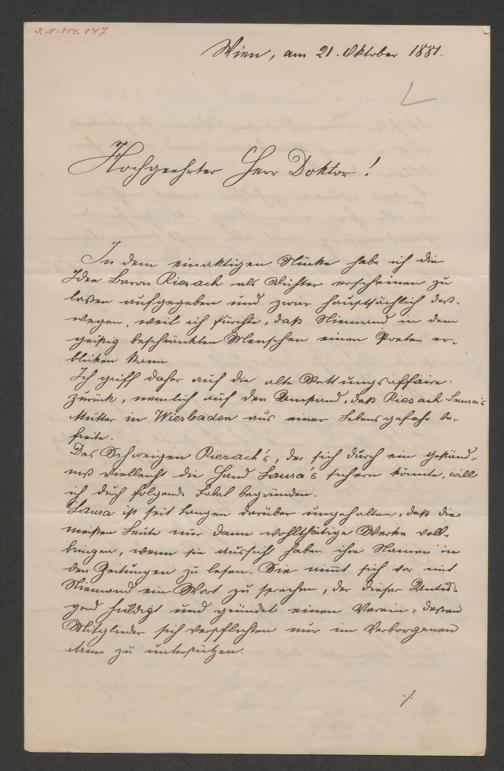 J.N. 114.147
Wien, am 21. Oktober 1881.
Hochgeehrter Herr Doktor!
In dem einaktigen Stücke habe ich die
Idee Baron Riesach als Dichter erscheinen zu
laßen aufgegeben und zwar hauptsächlich des-
wegen, weil ich fürchte, daß Niemand in dem
geistig beschränkten Menschen einen Poeten er-
blicken kann.
Ich greife daher auf die alte Rettungsaffaire
zurück, nemlich auf den Umstand, daß Riesach Laura's
Mutter in Wiesbaden aus einer Lebensgefahr be-
freite.
Das Schweigen Riesach's, der sich durch ein Geständ-
niß vielleicht die Hand Laura's sichern könnte, will
ich durch folgende Fabel begründen.
Laura ist seit langem darüber ungehalten, daß die
meisten Leute nur dann wohlthätige Werke voll-
bringen, wenn sie Aussicht haben ihre Namen in
den Zeitungen zu lesen. Sie nimmt sich vor mit
Niemand ein Wort zu sprechen, der dieser Untu-
gend huldigt und gründet einen Verein, deßen
Mitglieder sich verpflichten nur im Verborgenen
Arme zu unterstützen.
./.